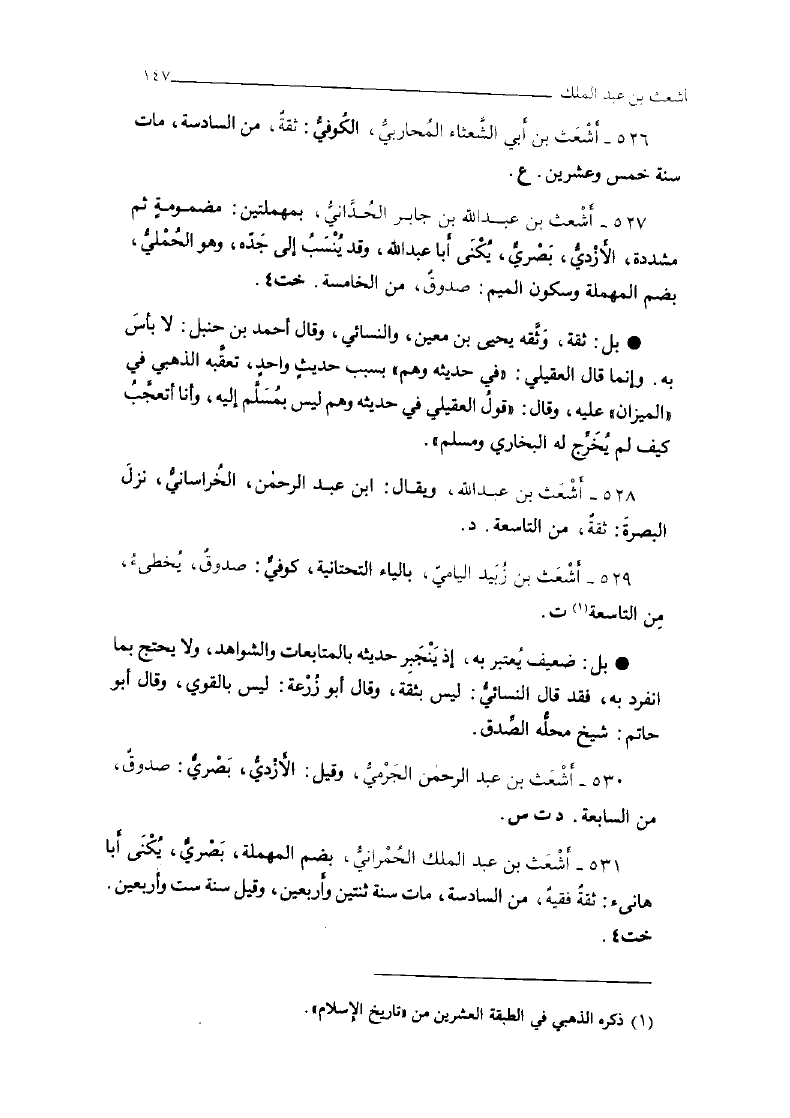 أشعث بن عبد الملك ١٤٧
٥٢٦ ـ أَشْعَث بن أبي الشَّعثاء المُحاربيُّ، الكُوفيُّ: ثقةٌ، من السادسة، مات
سنة خمس وعشرين. ع.
٥٢٧ ـ أَشْعث بن عبدالله بن جابر الحُدَّانيُّ، بمهملتين: مضمومةٍ ثم
مشددة، الأَزديُّ، بَصْريٌّ، يُكْنَى أبا عبدالله، وقد يُنْسَبُ إلى جَدّه، وهو الحُمْليُّ،
بضم المهملة وسكون الميم: صدوقٌ، من الخامسة. خت٤.
● بل: ثقة، وَثَّقه يحيى بن معين، والنسائي، وقال أحمد بن حنبل: لا بأسَ
به. وإنما قال العقيلي: «في حديثه وهم» بسبب حديثٍ واحدٍ، تعقَّبه الذهبي في
«الميزان» عليه، وقال: «قولُ العقيلي في حديثه وهم ليس بمُسَلَّم إليه، وأنا أتعجَّبُ
كيف لم يُخَرِّج له البخاري ومسلم».
٥٢٨ ـ أَشْعَث بن عبدالله، ويقال: ابن عبد الرحمٰن، الخُراسانيُّ، نزلَ
البصرةَ: ثقةٌ، من التاسعة. د.
٥٢٩ ـ أَشْعَث بن زُبَيد الياميّ، بالياء التحتانية، كوفيٌّ: صدوقٌ، يُخطىءُ،
مِن التاسعة(١) ت.
● بل: ضعيف يُعتبر به، إذ يَنْجَبِر حديثه بالمتابعات والشواهد، ولا يحتج بما
انفرد به، فقد قال النسائيُّ: ليس بثقة، وقال أبو زُرْعة: ليس بالقوي، وقال أبو
حاتم: شيخ محلُّه الصِّدق.
٥٣٠ ـ أَشْعَث بن عبد الرحمٰن الجَرْميُّ، وقيل: الأَزديُّ، بَصْريٌّ: صدوقٌ،
من السابعة. د ت س.
٥٣١ ـ أَشْعَث بن عبد الملك الحُمْرانيُّ، بضم المهملة، بَصْريٌّ، يُكْنَى أبا
هانىء: ثقةٌ فقيهٌ، من السادسة، مات سنة ثنتين وأربعين، وقيل سنة ست وأربعين.
خت٤.
(١) ذكره الذهبي في الطبقة العشرين من «تاريخ الإسلام».